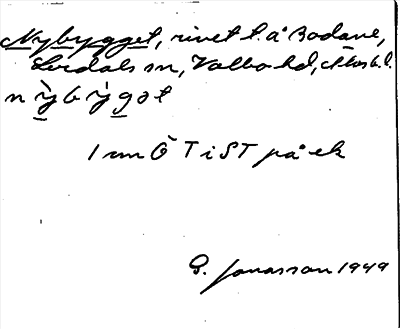 Nybygget, rivet t. å Bodane,
Lerdals sn, Valbo hd, Älvsb.l.
nỳbỳgət
1 m Ö T i ST på ek
G. Jonasson 1949